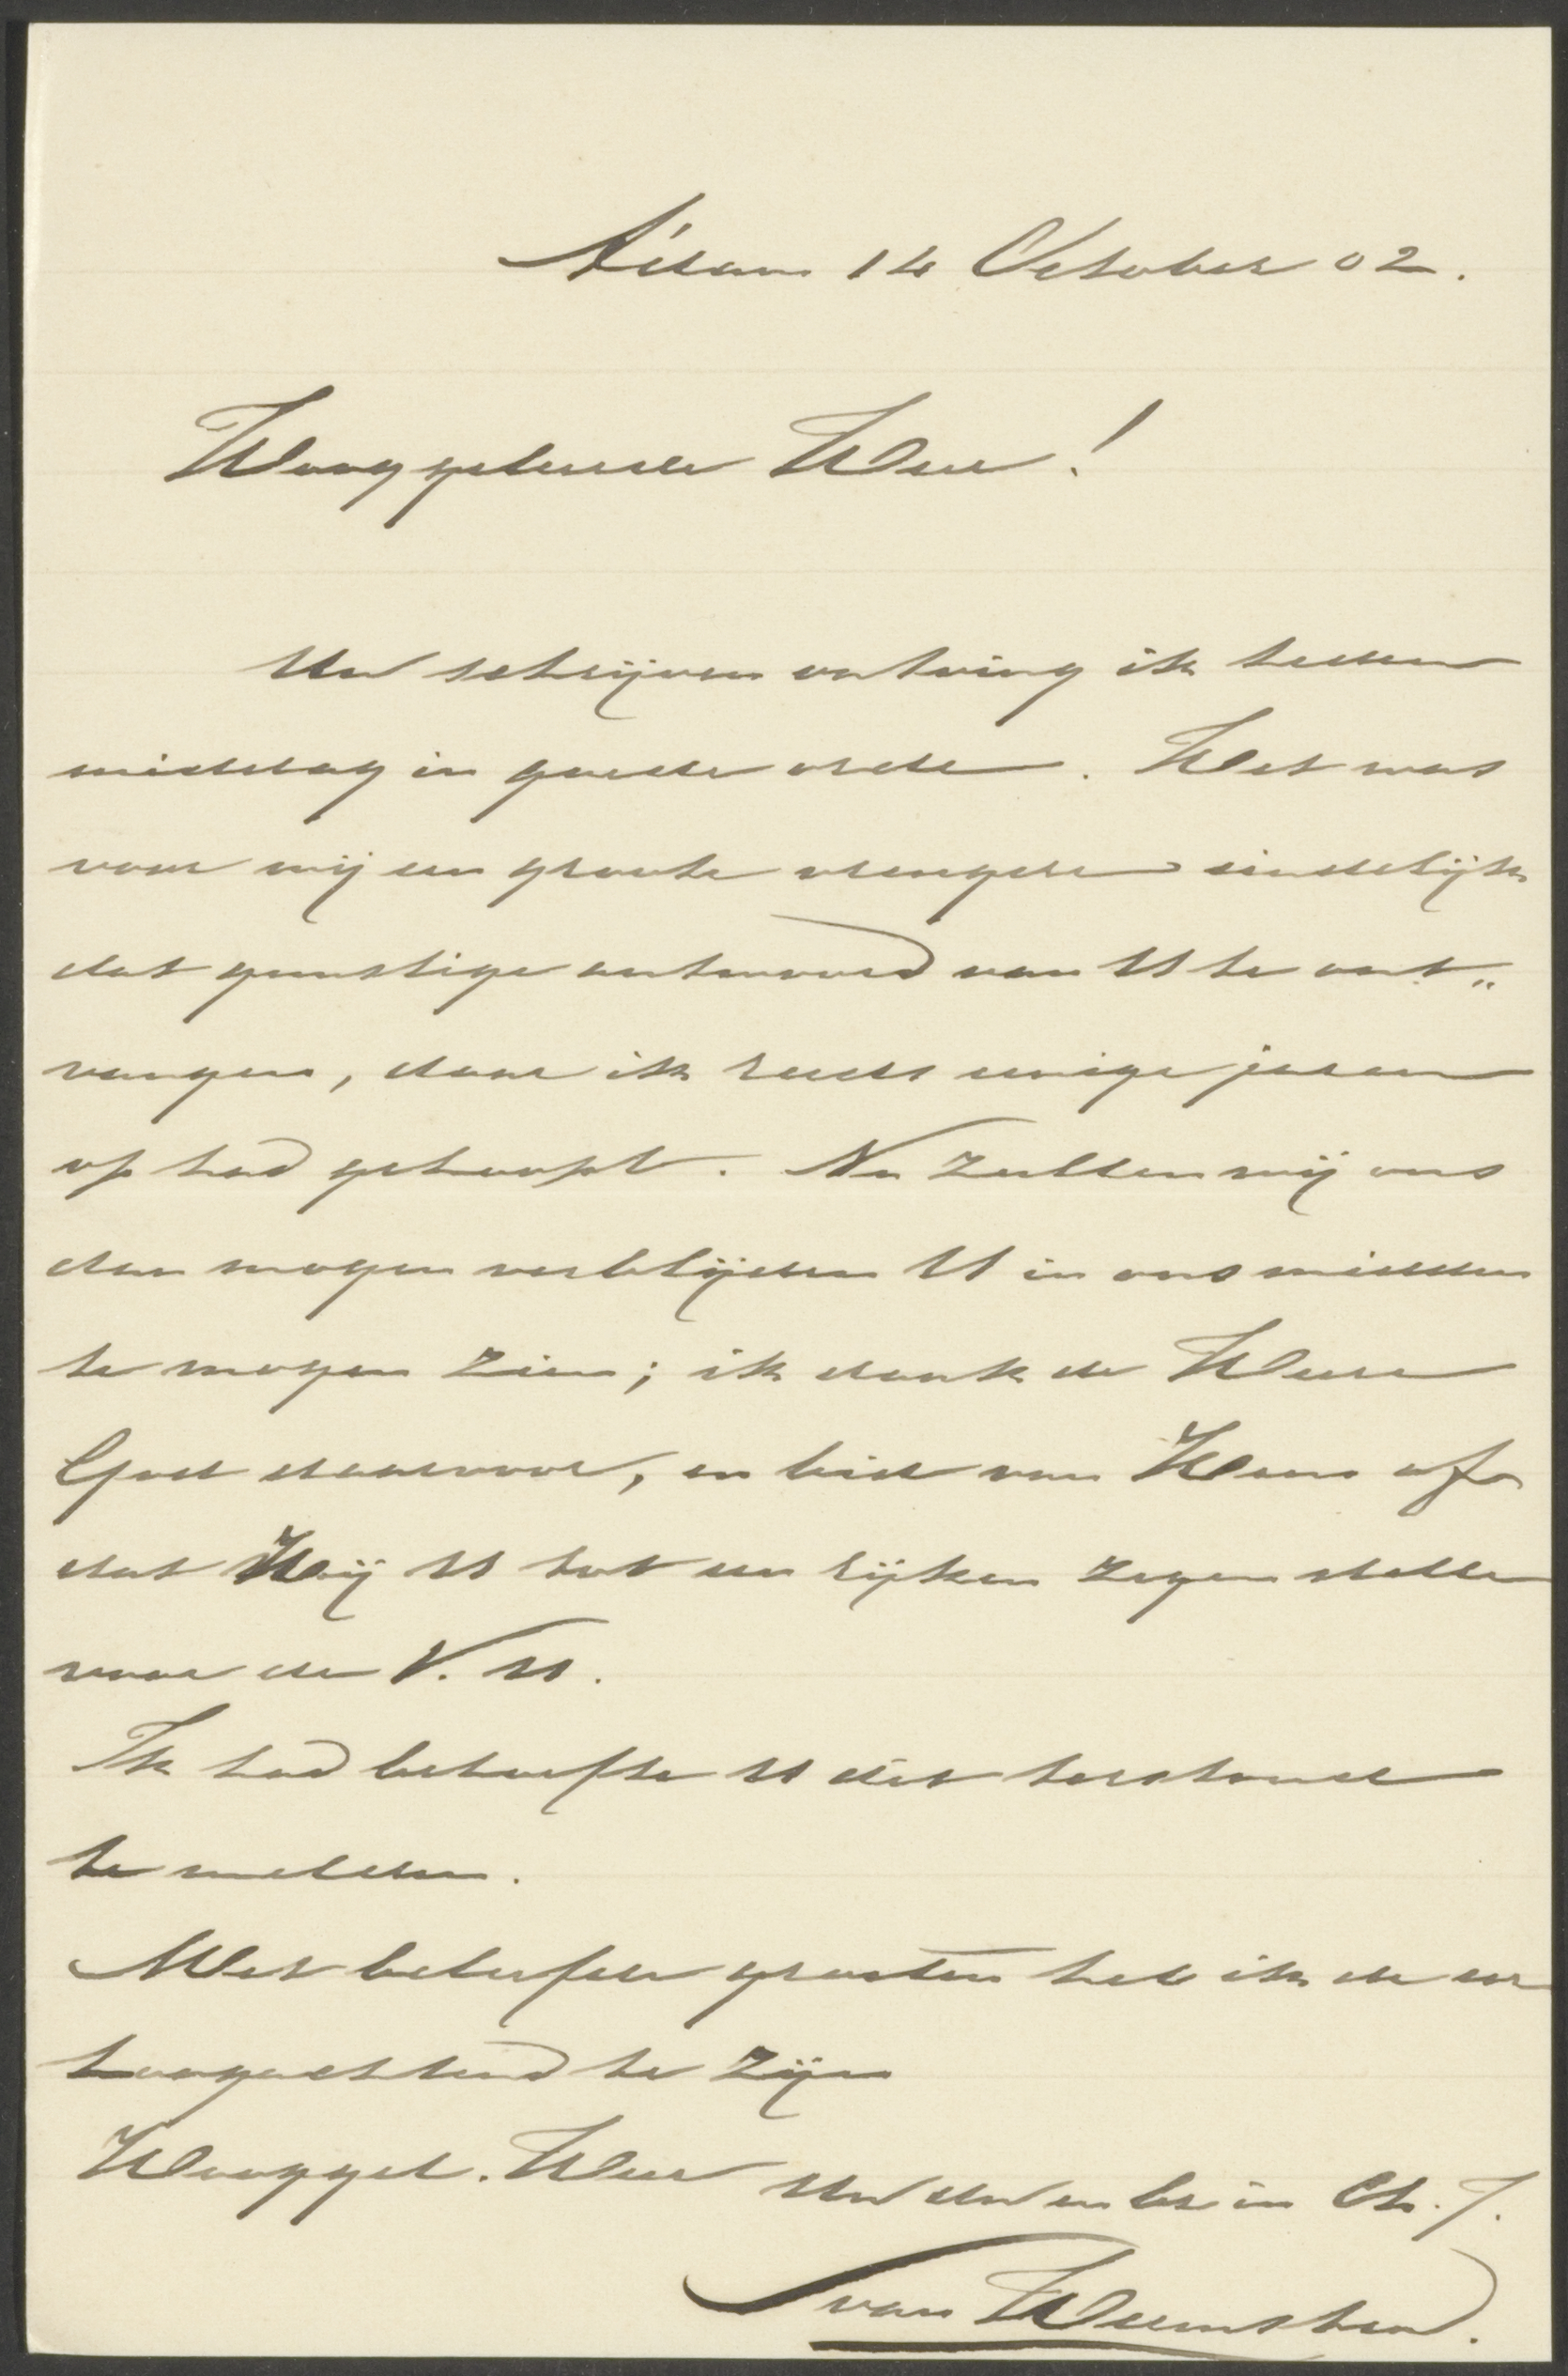 A'dam 14 October 02.
Hooggeleerde Heer!
Uw schrijven ontving ik heden
middag in goede orde. Het was
voor mij een groote vreugde eindelijk
dat gunstige antwoord van U te ont„
vangen, daar ik reeds eenige jaren
op had gehoopt. Nu zullen wij ons
dan mogen verblijden U in ons midden
te mogen zien; ik dank de Heere
God daarvoor, en bid van Hem af
dat Hij U tot een rijken zegen stelle
voor de V. U.
Ik had behoefte U dit terstond
te melden.
Met beleefde groeten heb ik de eer
hoogachtend te zijn
Hooggel. Heer Uw dw en br in Ch. J.
van Heemstra.